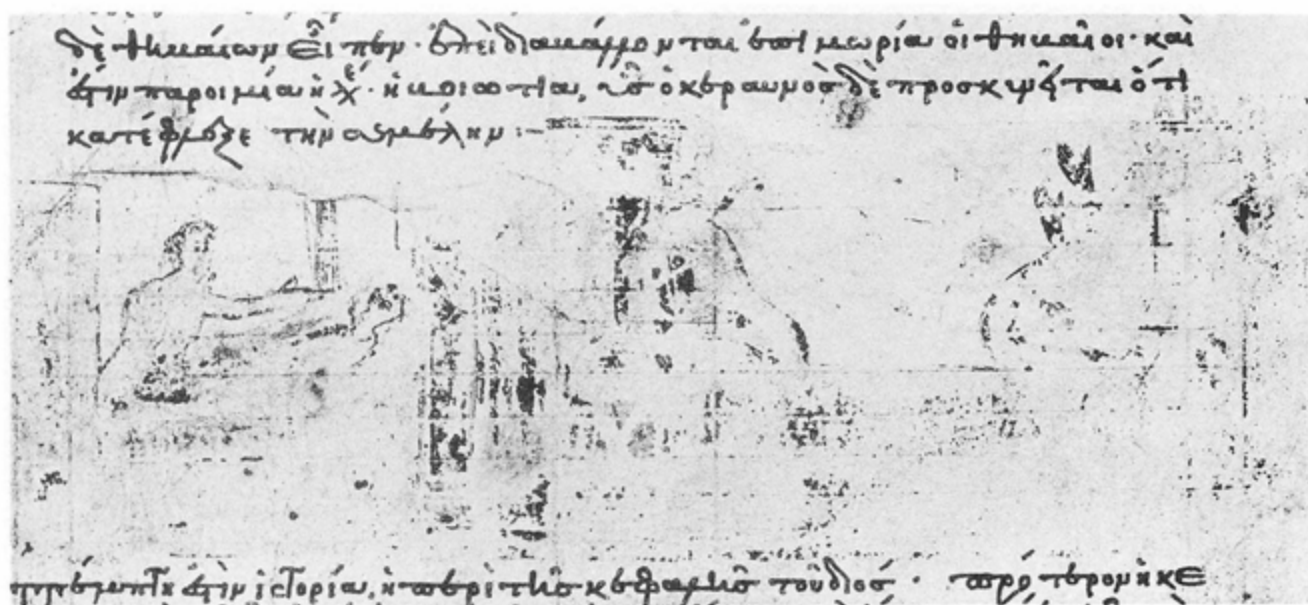 δὲ θηβαίων εἶπεν· ἐπεὶ διαβάλλονται ἐπὶ μωρίαι οἱ θηβαῖοι· καὶ
ἔστιν παροιμία ἡ βοιωτία, ὗς ὁ κεραυνὸς δὲ προσκυνεῖται ὅτι
κατέφλεξε τὴν σεμέλην:–
πέμπτη ἐστὶν ἱστορία, ἡ περὶ τῆς κεφαλῆς τοῦ διός·